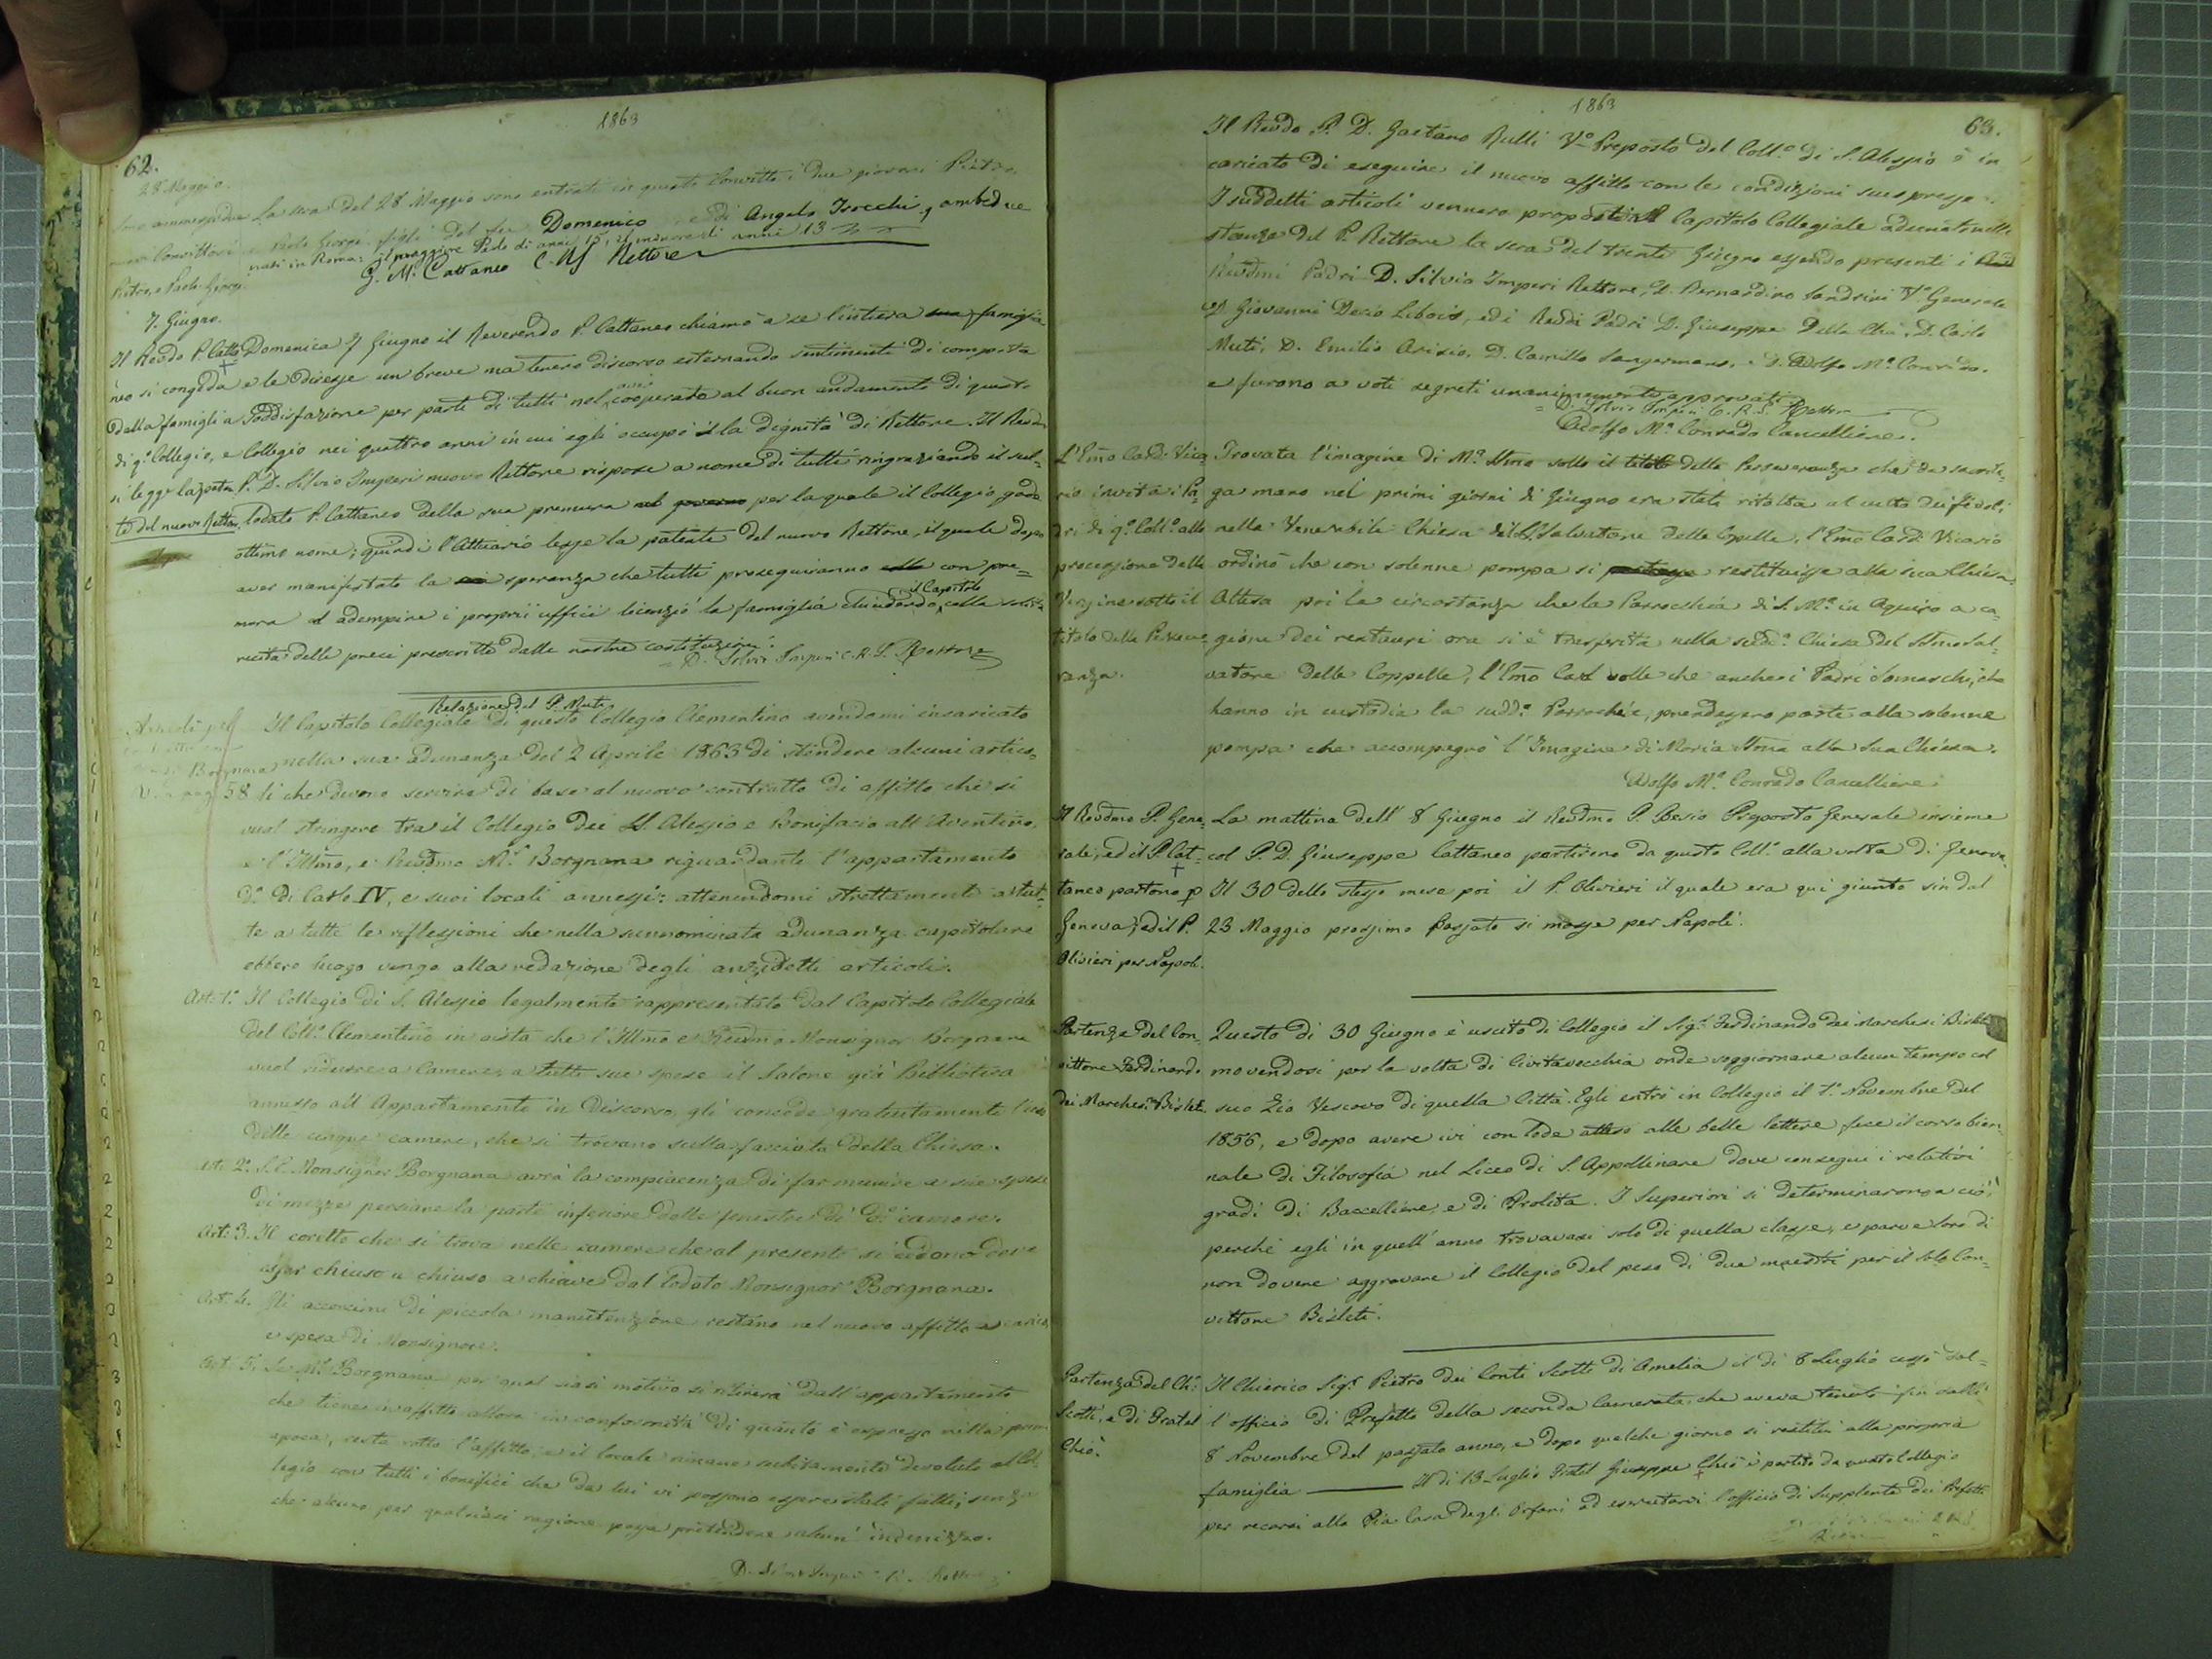 1863
62.
28 Maggio.
Sono ammessi due La sera del 28 Maggio sono entrati in questo Convitto i due giovani Pietro,
nuovi Convittori e Paolo Giorgi figli del fu Domenico e di Angela Isecchi, ambedue
Pietro, e Paolo Giorgi. nati in Roma: il maggiore Piero di anni 15, il minore di anni 13
G. M. Cattaneo C.R.S. Rettore
7. Giugno.
Il Revdo P. Catta Domenica 7 Giugno il Reverendo P. Cattaneo chiamò a se l'intiera sua famiglia
neo si congeda e le diresse un breve ma tenero discorso esternando sentimenti di compita
dalla famiglia soddisfazione per parte di tutti nel aver cooperato al buon andamento di questo
di q.º Collegio, e Collegio nei quattro anni in cui egli occupò la dignità di Rettore. Il Revdo
si legge la paten P. D. Silvio Imperi nuovo Rettore rispose a nome di tutti ringraziando il sul-
te del nuovo Rettore lodato P. Cattaneo della sua premura nel governo per la quale il Collegio gode
ottimo nome; quindi l'Attuario lesse la patente del nuovo Rettore, il quale dopo
aver manifestato la sua speranza che tutti proseguiranno colla con pre=
mura ad adempire i proprii uffici licenziò la famiglia chiudendo il Capitolo colla solita
recita delle preci prescritte dalle nostre costituzioni.
D. Silvio Imperi C.R.S. Rettore
Relazione del P. Muti
Articoli pel Il Capitolo Collegiale di questo Collegio Clementino avendomi incaricato
Borgnana nella sua adunanza del 2 Aprile 1863 di stendere alcuni artico-
V. a pag. 58 li che devono servire di base al nuovo contratto di affitto che si
vuol stringere tra il Collegio dei SS. Alessio e Bonifacio all'Aventino,
e l'Illmo, e Revdmo M.r Borgnana riguardante l'appartamento
d.º di Carlo IV, e suoi locali annessi: attenendomi strettamente a tut-
te a tutte le riflessioni che nella sunnominata adunanza capitolare
ebbero luogo vengo alla redazione degli anzidetti articoli.
Art: 1.º Il Collegio di S. Alessio legalmente rappresentato dal Capitolo Collegiale
del Coll.º Clementino in vista che l'Illmo e Revdmo Monsignor Borgnana
vuol ridurre a Camere, a tutte sue spese il Salone già Biblioteca
annesso all'Appartamento in discorso, gli concede gratuitamente l'uso
delle cinque camere, che si trovano sulla facciata della Chiesa.
Art. 2.º S. E. Monsignor Borgnana avrà la compiacenza di far munire a sue spese
di mezze persiane la parte inferiore delle fenestre di d.e camere.
Art: 3. Il coretto che si trova nelle camere che al presente si cedono deve
esser chiuso a chiuso a chiave dal lodato Monsignor Borgnana.
Art. 4. Gli acconcimi di piccola manutenzione restano nel nuovo affitto a carico,
e spesa di Monsignore.
Art: 5. Se M.r Borgnana per qual siasi motivo si ritirerà dall'appartamento
che tiene in affitto allora in conformità di quanto è espresso nella prima
apoca, resta rotto l'affitto e il locale rimane subitamente devoluto al Col-
legio con tutti i bonifici che da lui vi possono essere stati fatti, senza
che alcuno per qualsiasi ragione possa pretendere alcun' indenizzo.
D. Silvio Imperi C.R.S. Rettore
1863
63.
Il Revdo P. D. Gaetano Rulli V.º Preposto del Coll.º di S. Alessio è in
caricato di eseguire il nuovo affitto con le condizioni su espresse.
I suddetti articoli vennero proposti al Capitolo Collegiale adunato nelle
stanze del P. Rettore la sera del trenta Giugno essendo presenti i
Revdmi Padri D. Silvio Imperi Rettore, D. Bernardino Sandrini V.º Generale
e D. Giovanni Decio Libois, ed i Revdi Padri D. Giuseppe Della Chà, D. Carlo
Muti, D. Emilio Arisio, D. Camillo Sangermano, e D. Adolfo M.ª Conrado.
e furono a voti segreti unanimemente approvati
= D. Silvio Imperi C.R.S. Rettore
Adolfo M.ª Conrado Cancelliere.
L'Emo Card: Vica- Trovata l'imagine di M.ª SSma sotto il titolo della Perseveranza che da sacrile-
rio invita i Pa- ga mano nei primi giorni di Giugno era stata ritolta al culto dei fedeli
dri di q.º Coll.º alla nella Venerabile Chiesa del SS. Salvatore delle Copelle, l'Emo Card: Vicario
processione della ordinò che con solenne pompa si restituisse alla sua Chiesa.
Vergine sotto il Attesa poi la circostanza che la Parrocchia di S. M.ª in Aquiro a ca-
titolo della Perseve- gione dei restauri ora si è trasferita nella sudd.ª Chiesa del SSmo Sal-
ranza. vatore delle Coppelle, l'Emo Card volle che anche i Padri Somaschi, che
hanno in custodia la sudd.ª Parrochia, prendessero parte alla solenne
pompa che accompagnò l'Imagine di Maria SSma alla Sua Chiesa.
Adolfo M.ª Conrado Cancelliere
Il Revdmo P. Gene- La mattina dell' 8 Giugno il Revdmo P. Besio Preposto Generale insieme
rale, ed il P. Cat- col P. D. Giuseppe Cattaneo partirono da questo Coll.º alla volta di Genova.
taneo partono p Il 30 dello stesso mese poi il P. Olivieri il quale era qui giunto sin dal
Genova, ed il P. 23 Maggio prossimo passato si mosse per Napoli.
Olivieri per Napoli.
Partenza del Con- Questo dì 30 Giugno è uscito di Collegio il Sig.r Ferdinando dei Marchesi Bisleti
vittore Ferdinando movendosi per la volta di Civitavecchia onde soggiornare alcun tempo col
dei Marchesi Bisleti. suo Zio Vescovo di quella Città. Egli entrò in Collegio il 1.º Novembre del
1856, e dopo avere ivi con lode atteso alle belle lettere fece il corso bien-
nale di Filosofia nel Liceo di S. Appollinare dove conseguì i relativi
gradi di Baccelliere, e di Prolita. I Superiori si determinarono a ciò,
perchè egli in quell' anno trovavasi solo di quella classe, e parve loro di
non dovere aggravare il Collegio del peso di due maestri per il solo Con-
vittore Bisleti.
Partenza del Ch: Il Chierico Sig.r Pietro dei Conti Scotti di Amelia il dì 8 Luglio cessò dal-
Scotti, e di Fratel l'officio di Prefetto della seconda Camerata che aveva tenuto fin dalli
Chiò. 8 Novembre del passato anno, e dopo qualche giorno si restituì alla propria
famiglia — Il dì 13 Luglio Fratel Giuseppe Chiò è partito da questo Collegio
per recarsi alla Pia Casa degli Orfani ad esercitarvi l'officio di Supplente dei Prefetti